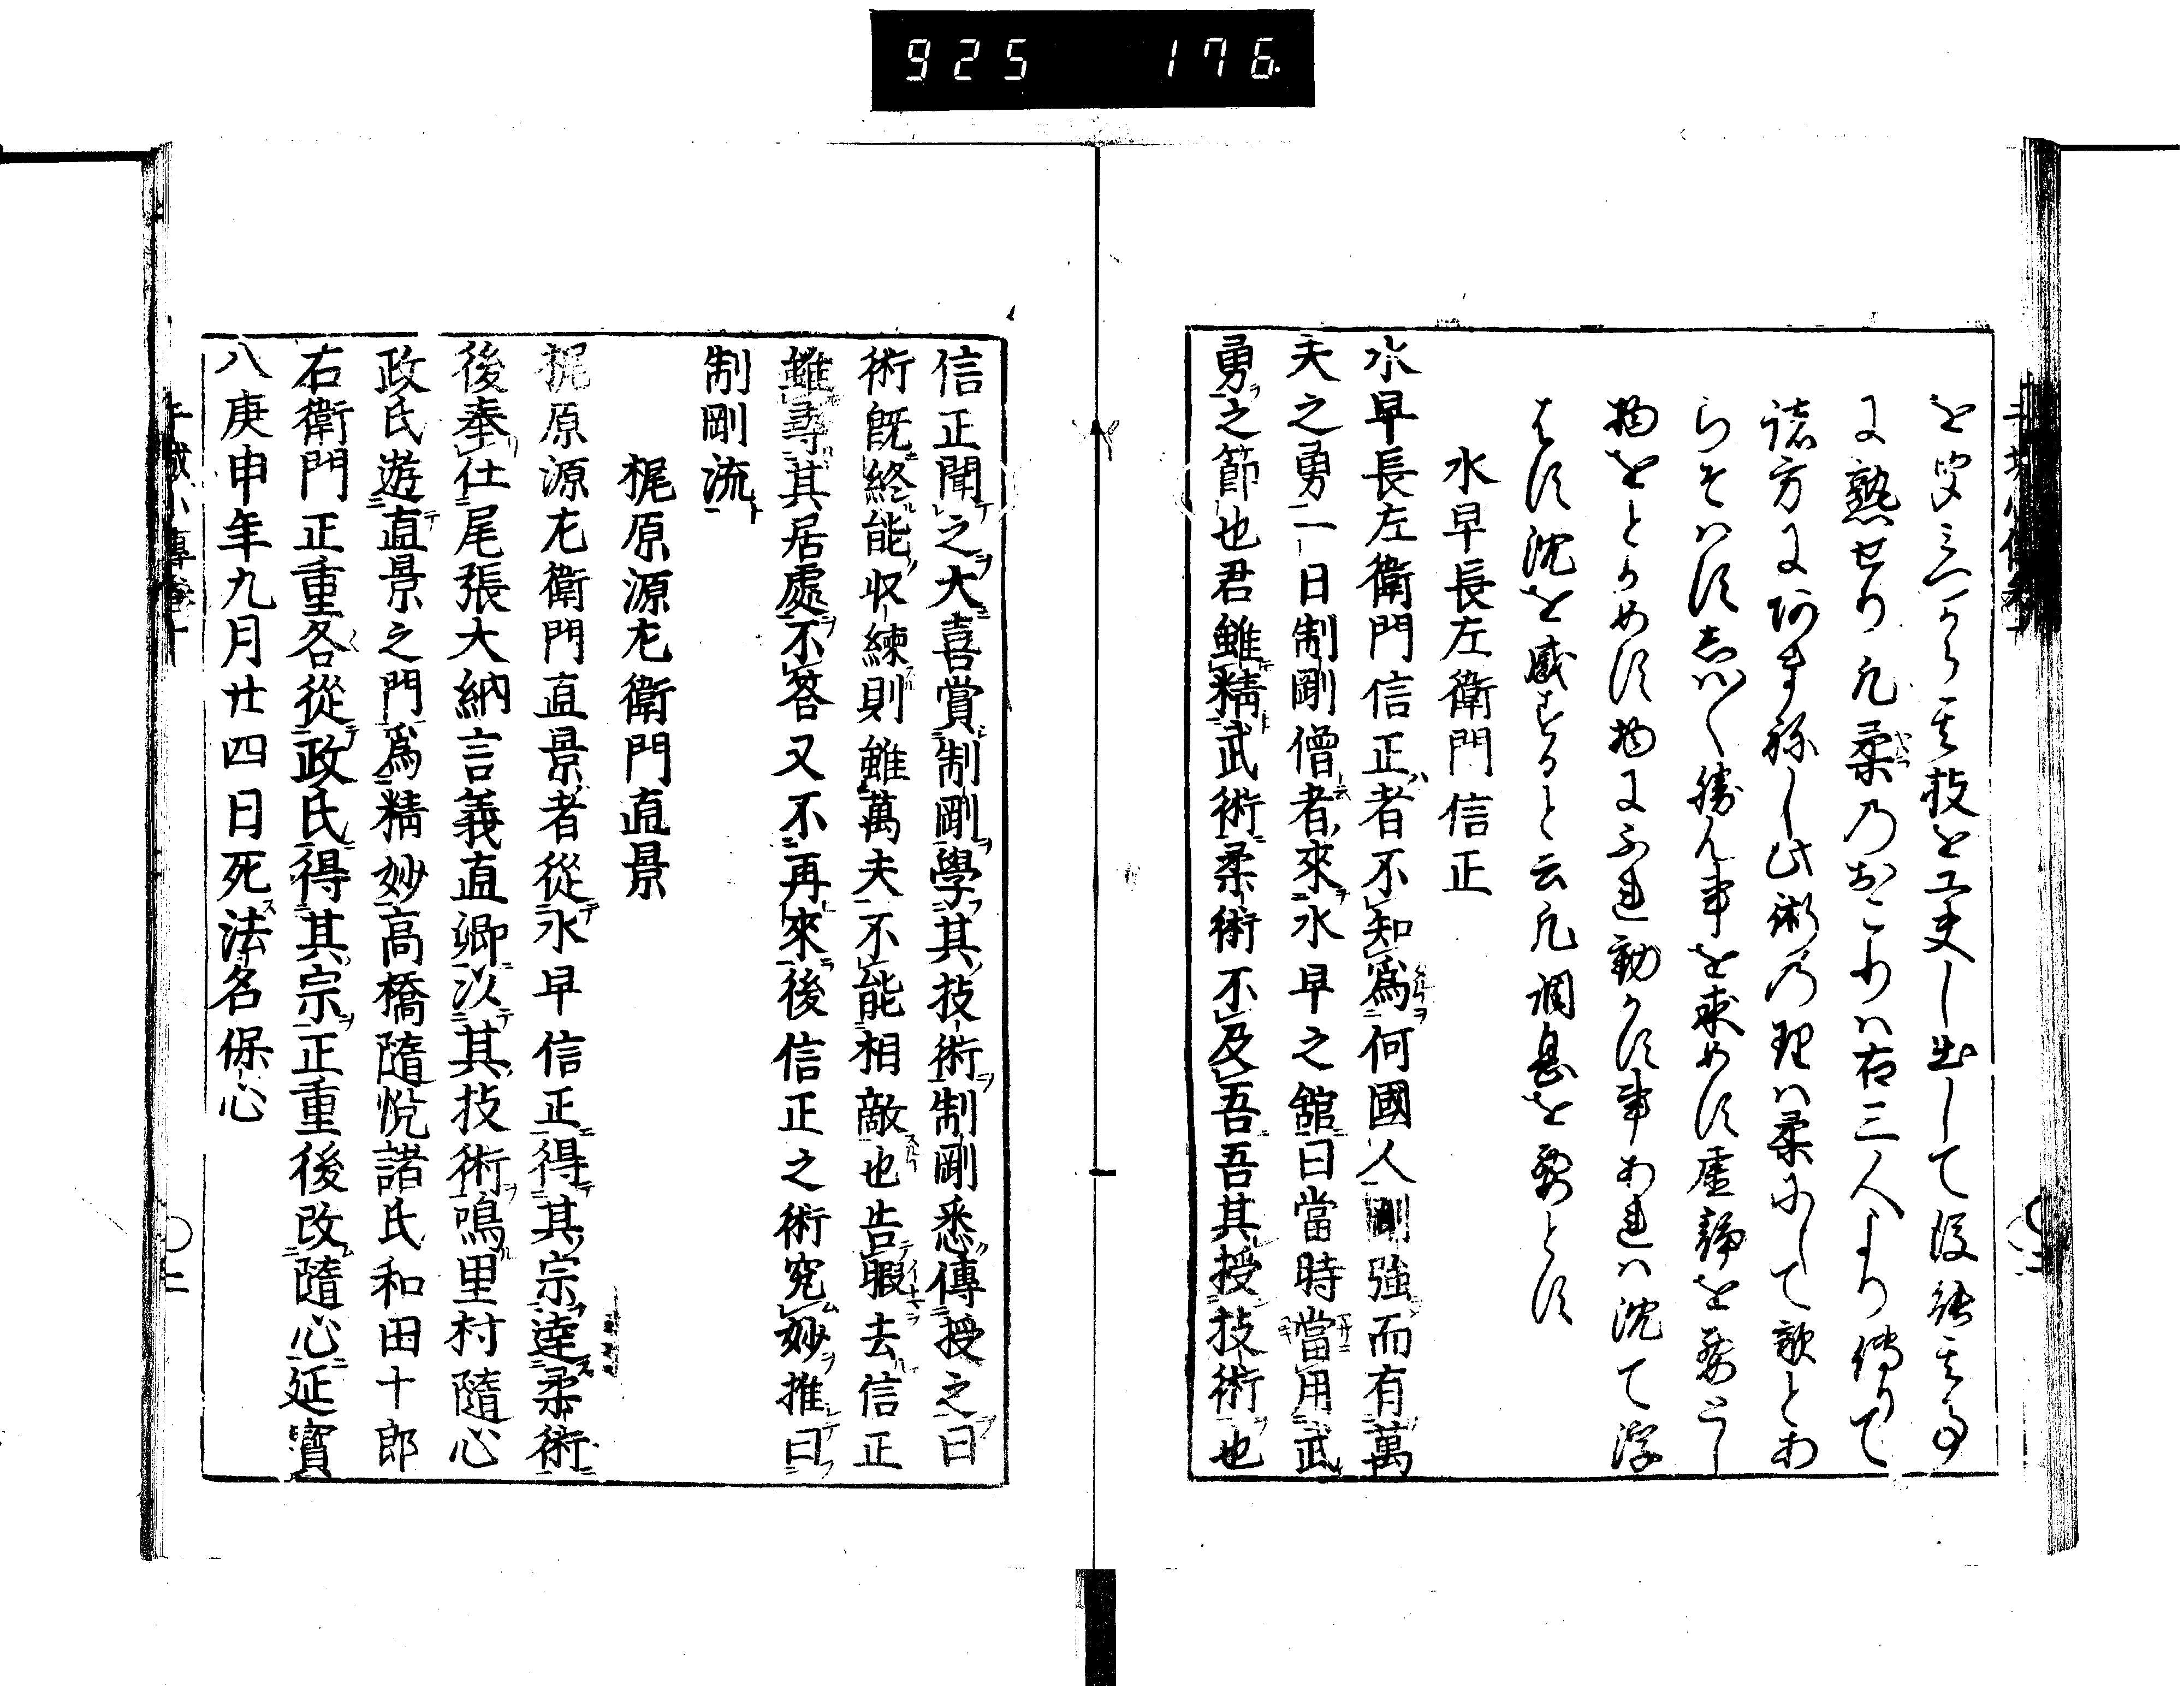 925 176.
を受たゝかふ其技を工夫し出して後能其事
に熟せり凡柔のおこりは右三人より傳りて
諸方にあまねし此術の理は柔にして敵とあ
らそはす志は〱勝ん事を求めす虚静を要とし
物をとかめす物にふれ動かす事あれは沈て浮
はす沈を感すると云凡調息を要とす
水早長左衛門信正
水早長左衛門信正者不知爲何國人剛強而有萬
夫之勇一日制剛僧者來水早之舘曰當時當用武
勇之節也君雖精武術柔術不及吾吾其授技術也
信正聞之大喜賞制剛學其技術制剛悉傳授之曰
術既終能収練則雖萬夫不能相敵也告暇去信正
雖尋其居處不答又不再來後信正之術究妙推曰
制剛流
梶原源左衛門直景
梶原源左衛門直景者從水早信正得其宗達柔術
後奉仕尾張大納言義直卿以其技術鳴里村隨心
政氏遊直景之門爲精妙高橋隨悦諸氏和田十郎
右衛門正重各從政氏得其宗正重後改隨心延寳
八庚申年九月廿四日死法名保心
〇二